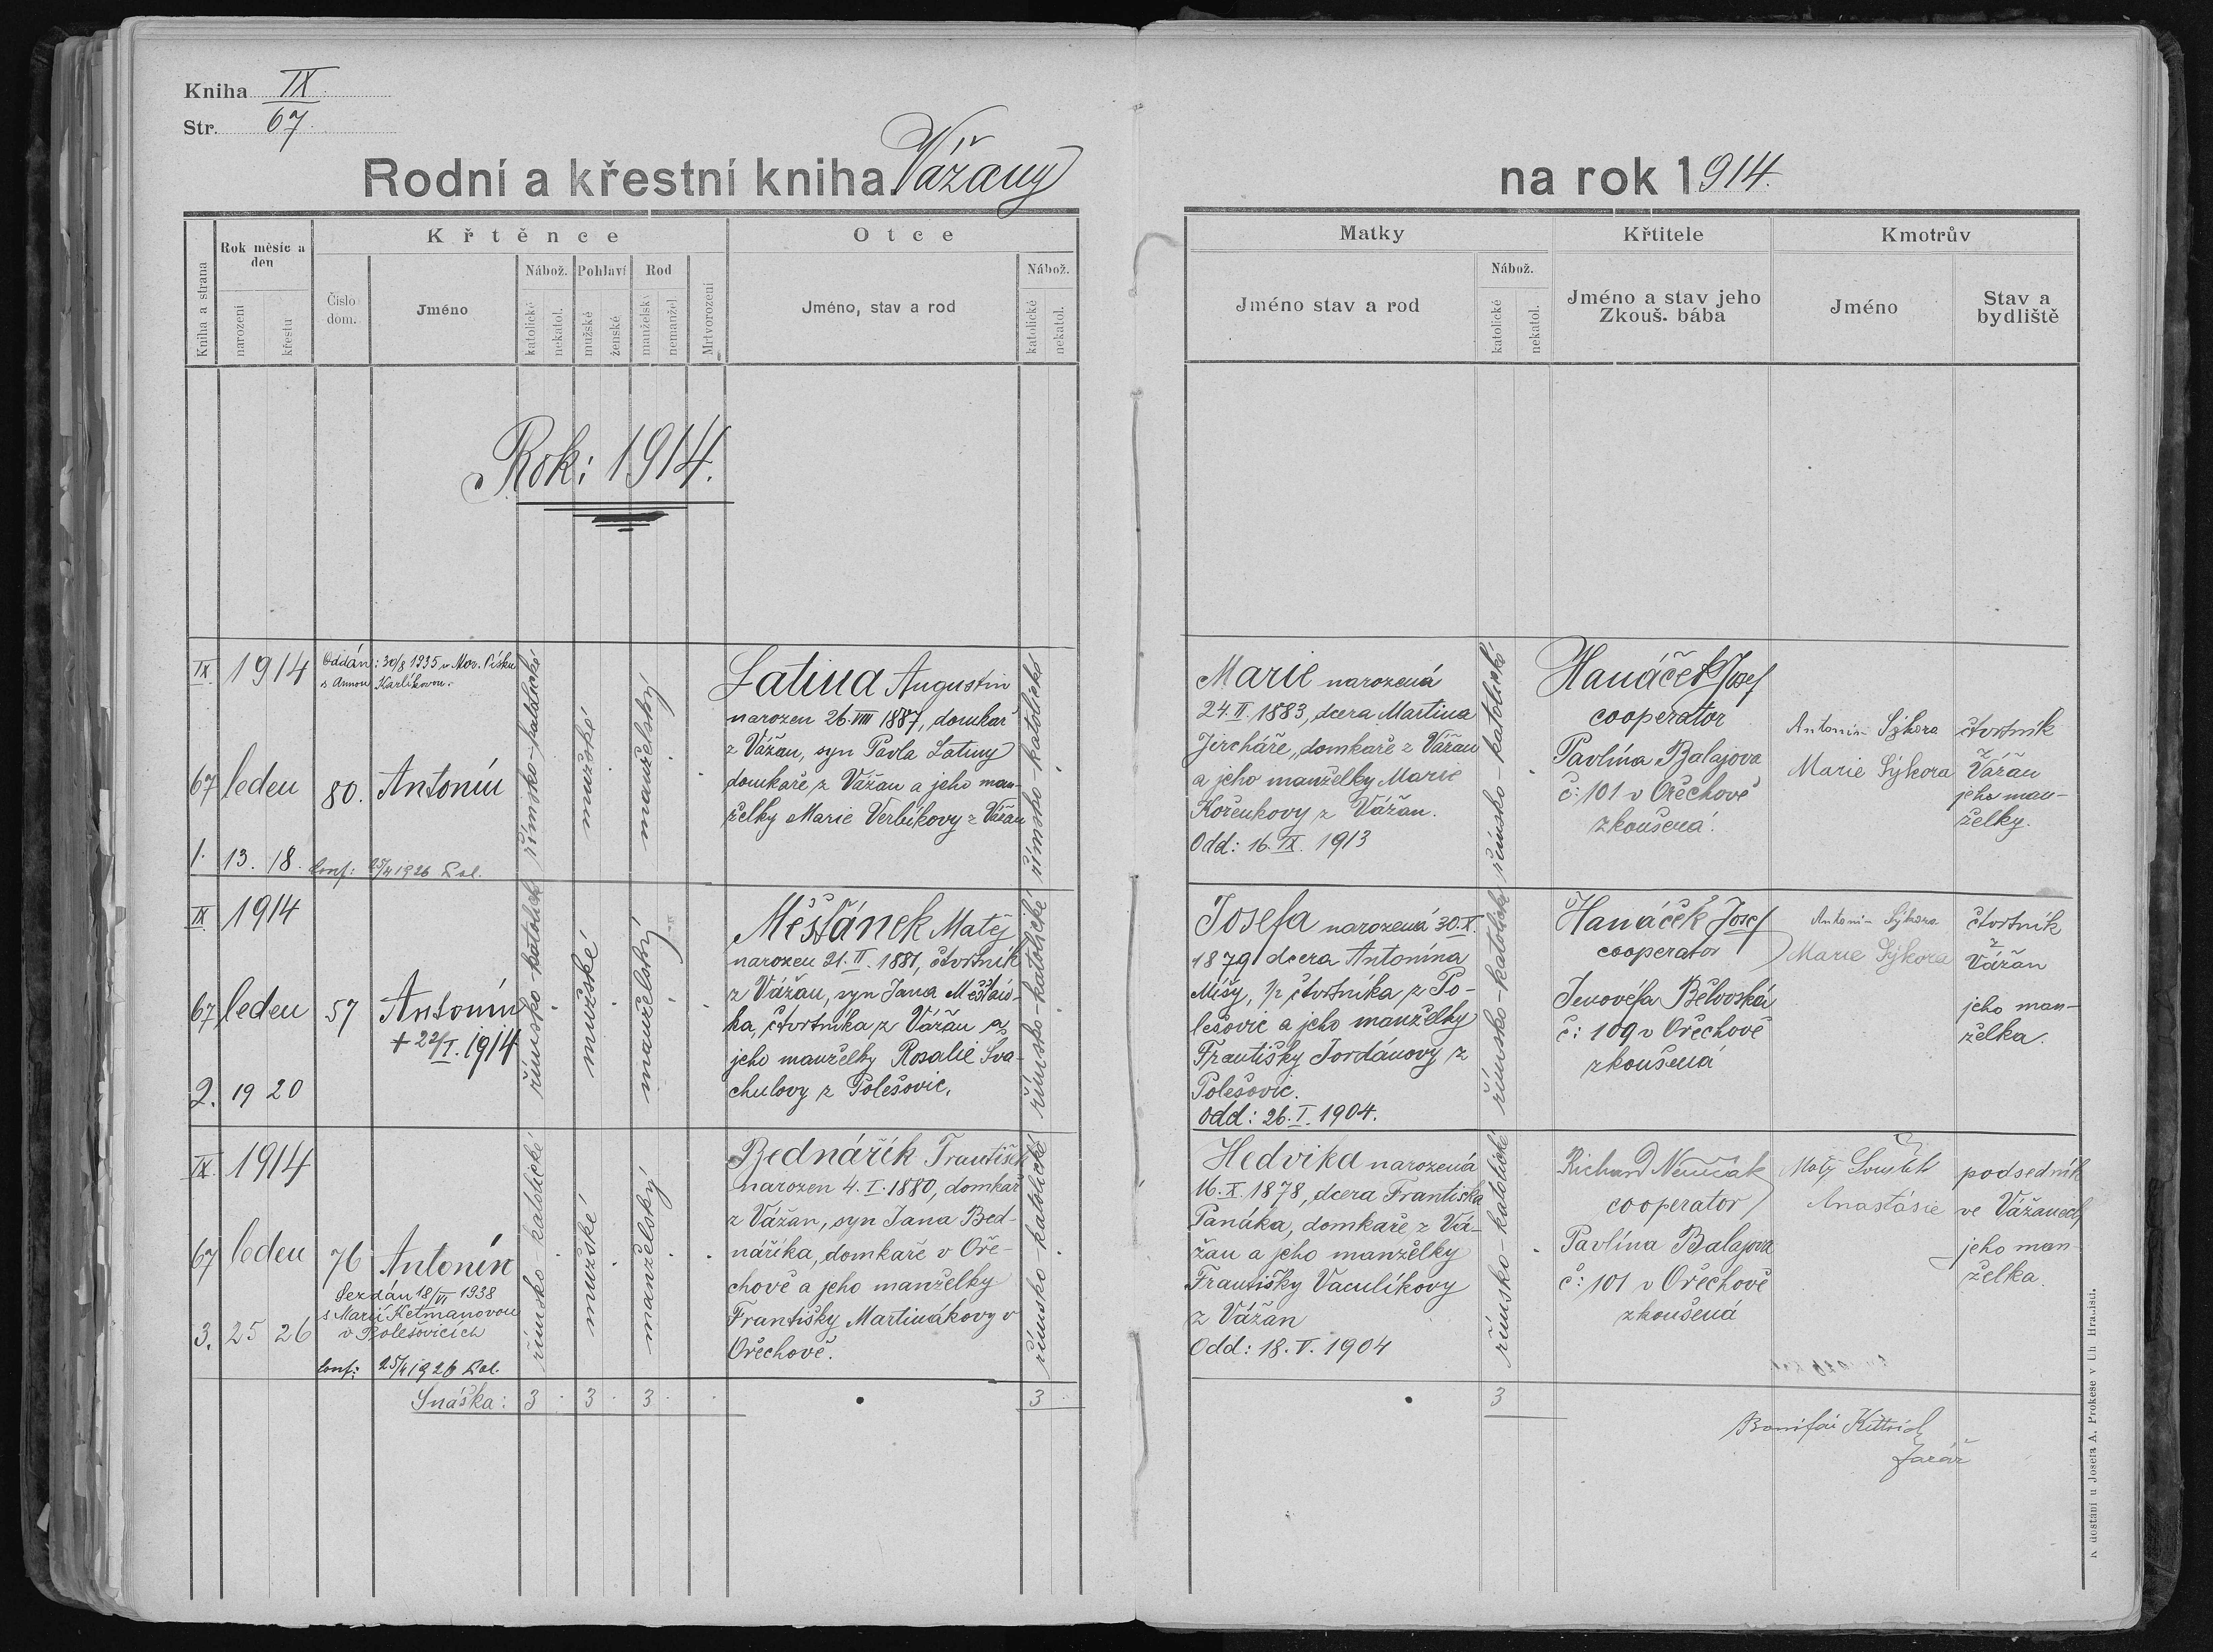 Kniha IX
Str. 67.
Rodní a křestní kniha Vážany na rok 1914.
Kniha a strana
Rok měsíc a den
narození
křestu
Křtěnce
Číslo dom.
Jméno
Nábož.
katolické
nekatol.
Pohlaví
mužské
ženské
Rod
manželský
nemanžel.
Mrtvorození
Otce
Jméno, stav a rod
Nábož.
katolické
nekatol.
Matky
Jméno stav a rod
Nábož.
katolické
nekatol.
Křtitele
Jméno a stav jeho
Zkouš. bába
Kmotrův
Jméno
Stav a
bydliště
Rok: 1914.
IX. 1914
67 leden
1. 13. 18.
Oddán: 30/8 1935 v Mor. Písku
s Annou Karlíkovou.
80. Antonín
Conf: 25/4 1926 Pol.
římsko-katolické
mužské
manželský
Latina Augustin
narozen 26. VIII 1887, domkař
z Vážan, syn Pavla Latiny
domkaře z Vážan a jeho man-
želky Marie Verbíkovy z Vážan
římsko-katolické
Marie narozená
24. II. 1883, dcera Martina
Jircháře, domkaře z Vážan
a jeho manželky Marie
Kořenkovy z Vážan.
Odd: 16. IX. 1913
římsko-katolické
Hanáček Josef
cooperator
Pavlína Balajova
č: 101 v Ořechově
zkoušená.
Antonín Sýkora
Marie Sýkora
čtvrtník
Vážan
jeho man-
želky.
IX. 1914
67 leden
2. 19 20
57 Antonín
+ 22/I. 1914
římsko katolické
mužské
manželský
Měšťánek Matěj
narozen 21. II. 1881, čtvrtník
z Vážan, syn Jana Měšťán-
ka, čtvrtníka z Vážan a
jeho manželky Rosalie Šva-
chulovy z Polešovic.
římsko-katolické
Josefa narozená 30. X.
1879 dcera Antonína
Mišy, 1/2 čtvrtníka z Po-
lešovic a jeho manželky
Františky Jordánovy z
Polešovic.
Odd: 26. I. 1904.
římsko-katolické
Hanáček Josef
cooperator
Jenovéfa Bělovská
č: 109 v Ořechově
zkoušená
Antonín Sýkora
Marie Sýkora
čtvrtník
Vážan
jeho man-
želka.
IX. 1914
67 leden
3. 25 26
76 Antonín
Sezdán 18/VI 1938
s Marií Ketmanovou
v Polešovicích
Conf: 25/4 1926 Pol.
římsko-katolické
mužské
manželský
Bednářík František
narozen 4. I. 1880, domkař
z Vážan, syn Jana Bed-
náříka, domkaře v Oře-
chově a jeho manželky
Františky Martinákovy v
Ořechově.
římsko-katolické
Hedvika narozená
16. X. 1878, dcera Františka
Panáka, domkaře z Vá-
žan a jeho manželky
Františky Vaculíkovy
z Vážan
Odd: 18. V. 1904
římsko-katolické
Richard Němčák
cooperator
Pavlína Balajova
č: 101 v Ořechově
zkoušená
Matěj
Anastásie
podsedník
ve Vážanech
jeho man-
želka.
Snáška: 3 3 3 3 3
Bonifác Kittrich
farář
K dostání u Josefa A. Prokeše v Uh. Hradišti.